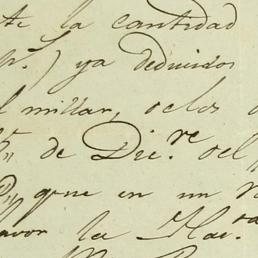 te la cantidad
p.ˢ) ya deducidos
l millar, o los
de Dic.ʳᵉ del
que en un
avor la Hac.ᵈᵃ